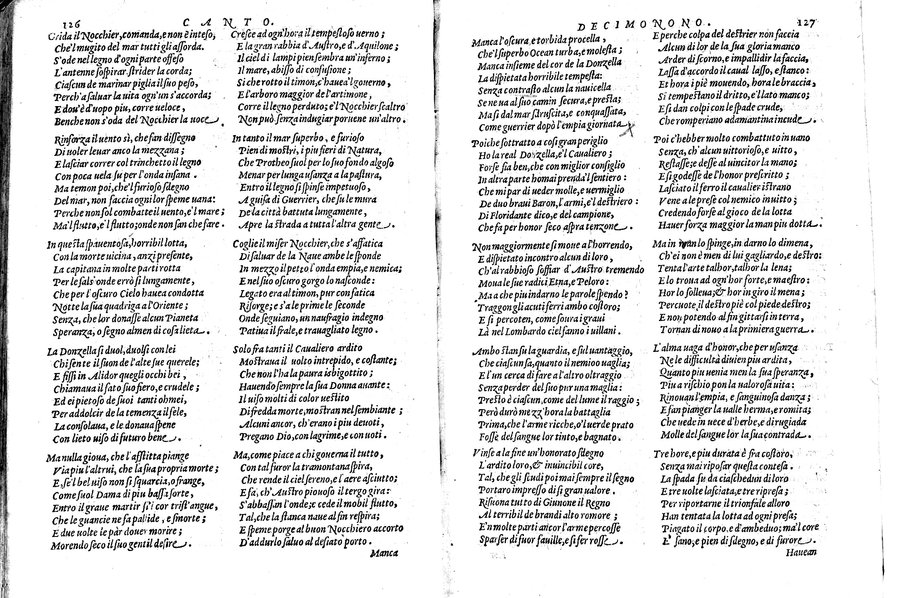 126 CANTO.
Grida il Nocchier, comanda, e non è inteso,
Che'l mugito del mar tutti gli assorda.
S'ode nel legno d'ogni parte offeso
L'antenne sospirar strider la corda;
Ciascun de marinar piglia il suo peso,
Perch'a saluar la uita ogn'un s'accorda;
E dou'è d'uopo piu, corre ueloce,
Benche non s'oda del Nocchier la uoce.
Rinforza il uento sì, che fan dissegno
Di uoler leuar anco la mezzana;
E lasciar correr col trinchetto il legno
Con poca uela su per l'onda insana.
Ma temon poi, che'l furioso sdegno
Del mar, non faccia ogni lor speme uana:
Perche non sol combatte il uento, e'l mare;
Ma'l flutto, e'l flutto; onde non san che fare.
In questa spauentosa, horribil lotta,
Con la morte uicina, anzi presente,
La capitana in molte parti rotta
Per le sals'onde errò sì lungamente,
Che per l'oscuro Cielo hauea condotta
Notte la sua quadriga a l'Oriente;
Senza, che lor donasse alcun Pianeta
Speranza, o segno almen di cosa lieta.
La Donzella si duol, duolsi con lei
Chi sente il suon de l'alte sue querele;
E fissi in Alidor quegli occhi bei,
Chiamaua il fato suo fiero, e crudele;
Ed ei pietoso de suoi tanti ohmei,
Per addolcir de la temenza il fele,
La consolaua, e le donaua spene
Con lieto uiso di futuro bene.
Ma nulla gioua, che l'afflitta piange
Via piu l'altrui, che la sua propria morte;
E, se'l bel uiso non si squarcia, o frange,
Come suol Dama di piu bassa sorte,
Entro il graue martir sì i cor trist'ange,
Che le guancie ne fa pallide, e smorte;
E due uolte le pàr douer morire;
Morendo seco il suo gentil desire.
Cresce ad ogn'hora il tempestoso uerno;
E la gran rabbia d'Austro, e d'Aquilone;
Il ciel di lampi pien sembra un'inferno;
Il mare, abisso di confusione;
Si che rotto il timon, e'hauea'l gouerno,
E l'arboro maggior de l'artimone,
Corre il legno perduto; e'l Nocchier scaltro
Non può senza indugiar poruene un'altro.
In tanto il mar superbo, e furioso
Pien di mostri, i piu fieri di Natura,
Che Protheo suol per lo suo fondo algoso
Menar per lunga usanza a la pastura,
Entro il legno si spinse impetuoso,
A guisa di Guerrier, che su le mura
De la città battuta lungamente,
Apre la strada a tutta l'altra gente.
Coglie il miser Nocchier, che s'affatica
Di saluar de la Naue ambe le sponde
In mezzo il petto l'onda empia, e nemica;
E nel suo oscuro gorgo lo nasconde:
Legato era al timon, pur con fatica
Risorge; e s'a le prime le seconde
Onde seguiano, un naufragio indegno
Patiua il frale, e trauagliato legno.
Solo fra tanti il Caualiero ardito
Mostraua il uolto intrepido, e costante;
Che non l'ha la paura isbigottito;
Hauendo sempre la sua Donna auante:
Il uiso molti di color uestito
Di fredda morte, mostran nel sembiante;
Alcuni ancor, ch'erano i piu deuoti,
Pregano Dio, con lagrime, e con uoti.
Ma, come piace a chi gouerna il tutto,
Con tal furor la tramontana spira,
Che rende il ciel sereno, e l'aere asciutto;
E fà, ch'Austro piouoso il tergo gira:
S'abbassan l'onde; e cede il mobil flutto,
Tal, che la stanca naue al fin respira;
E speme porge al buon Nocchiero accorto
D'addurlo saluo al desiato porto.
Manca
DECIMONONO. 127
Manca l'oscura, e torbida procella,
Che'l superbo Ocean turba, e molesta;
Manca insieme del cor de la Donzella
La dispietata horribile tempesta:
Senza contrasto alcun la nauicella
Se ne ua al suo camin secura, e presta;
Ma sì dal mar sdruscita, e conquassata,
Come guerrier dopò l'empia giornata.
Poiche sottratto a così gran periglio
Ho la real Donzella, e'l Caualiero;
Forse sia ben, che con miglior consiglio
In altra parte homai prenda'l sentiero:
Che mi par di ueder molle, e uermiglio
De duo braui Baron, l'armi, e'l destriero:
Di Floridante dico, e del campione,
Che fa per honor seco aspra tenzone.
Non maggiormente si moue a l'horrendo,
E dispietato incontro alcun di loro,
Ch'al rabbioso soffiar d'Austro tremendo
Moua le sue radici Etna, e Peloro:
Ma a che più indarno le parole spendo?
Traggon gli acuti ferri ambo costoro;
E si percoten, come soura i graui
Là nel Lombardo ciel fanno i uillani.
Ambo stan su la guardia, e sul uantaggio,
Che ciascun sa, quanto il nemico uaglia;
E l'un cerca di fare a l'altro oltraggio
Senza perder del suo pur una maglia:
Presto è ciascun, come del lume il raggio;
Però durò mezz'hora la battaglia
Prima, che l'arme ricche, o'l uerde prato
Fosse del sangue lor tinto, e bagnato.
Vinse a la fine un'honorato sdegno
L'ardito loro, & inuincibil core,
Tal, che gli scudi poi mai sempre il segno
Portaro impresso di sì gran ualore.
Risuona tutto di Giunone il Regno
Al terribil de brandi alto romore;
E'n molte parti ancor l'arme percosse
Sparser di fuor fauille, e si fer rosse.
E perche colpa del destrier non faccia
Alcun di lor de la sua gloria manco
Arder di scorno, e impallidir la faccia,
Lassa d'accordo il caual lasso, e stanco:
Et hora i piè mouendo, hora le braccia,
Si tempestano il dritto, e'l lato manco;
E si dan colpi con le spade crude,
Che romperiano adamantina incude.
Poi c'hebber molto combattuto in uano
Senza, ch'alcun uittorioso, e uitto,
Restasse; e desse al uincitor la mano;
E si godesse de l'honor prescritto;
Lasciato il ferro il caualier istrano
Vene a le prese col nemico inuitto;
Credendo forse al gioco de la lotta
Hauer forza maggior la man piu dotta.
Ma in uan lo spinge, in darno lo dimena,
Ch'ei non è men di lui gagliardo, e destro:
Tenta l'arte talhor, talhor la lena;
E lo troua ad ogn'hor forte, e maestro:
Hor lo solleua; & hor in giro il mena;
Percuote il destro piè col piede destro;
E non potendo al fin gittarsi in terra,
Tornan di nouo a la primiera guerra.
L'alma uaga d'honor, che per usanza
Ne le difficultà diuien piu ardita,
Quanto piu uenia men la sua speranza,
Piu a rischio pon la ualorosa uita:
Rinouan l'empia, e sanguinosa danza;
E fan pianger la ualle herma, e romita;
Che uede in uece d'herbe, e di rugiada
Molle del sangue lor la sua contrada.
Tre hore, e piu durata è fra costoro,
Senza mai riposar questa contesa.
La spada fu da ciascheduu di loro
E tre uolte lasciata, e tre ripresa;
Per riportarne il trionfale alloro
Han tentata la lotta ad ogni presa;
Piagato il corpo è d'ambeduo; ma'l core
E' sano, e pien di sdegno, e di furore.
Hauean